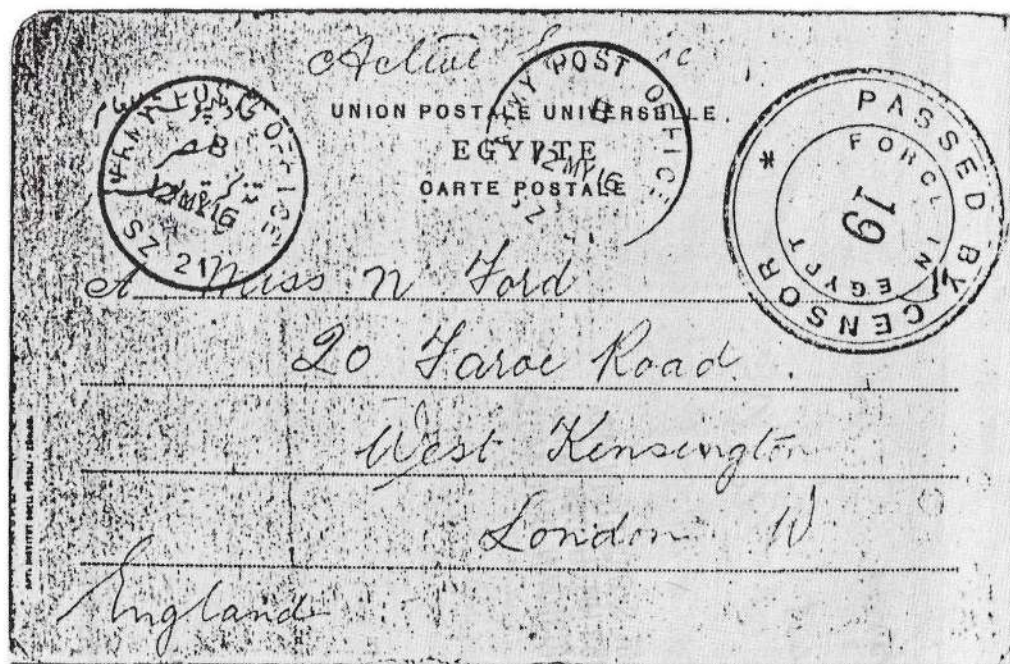 Active
UNION POSTALE UNIVERSELLE.
EGYPTE
CARTE POSTALE
ARMY POST OFFICE
B
12 MY 16
SZ 21
ARMY POST OFFICE
B
12 MY 16
SZ
PASSED BY CENSOR *
FORCE IN EGYPT
19
A Miss N Ford
20 Faroe Road
West Kensington
London W
England
ART. INSTITUT ORELL FÜSSLI - ZÜRICH.